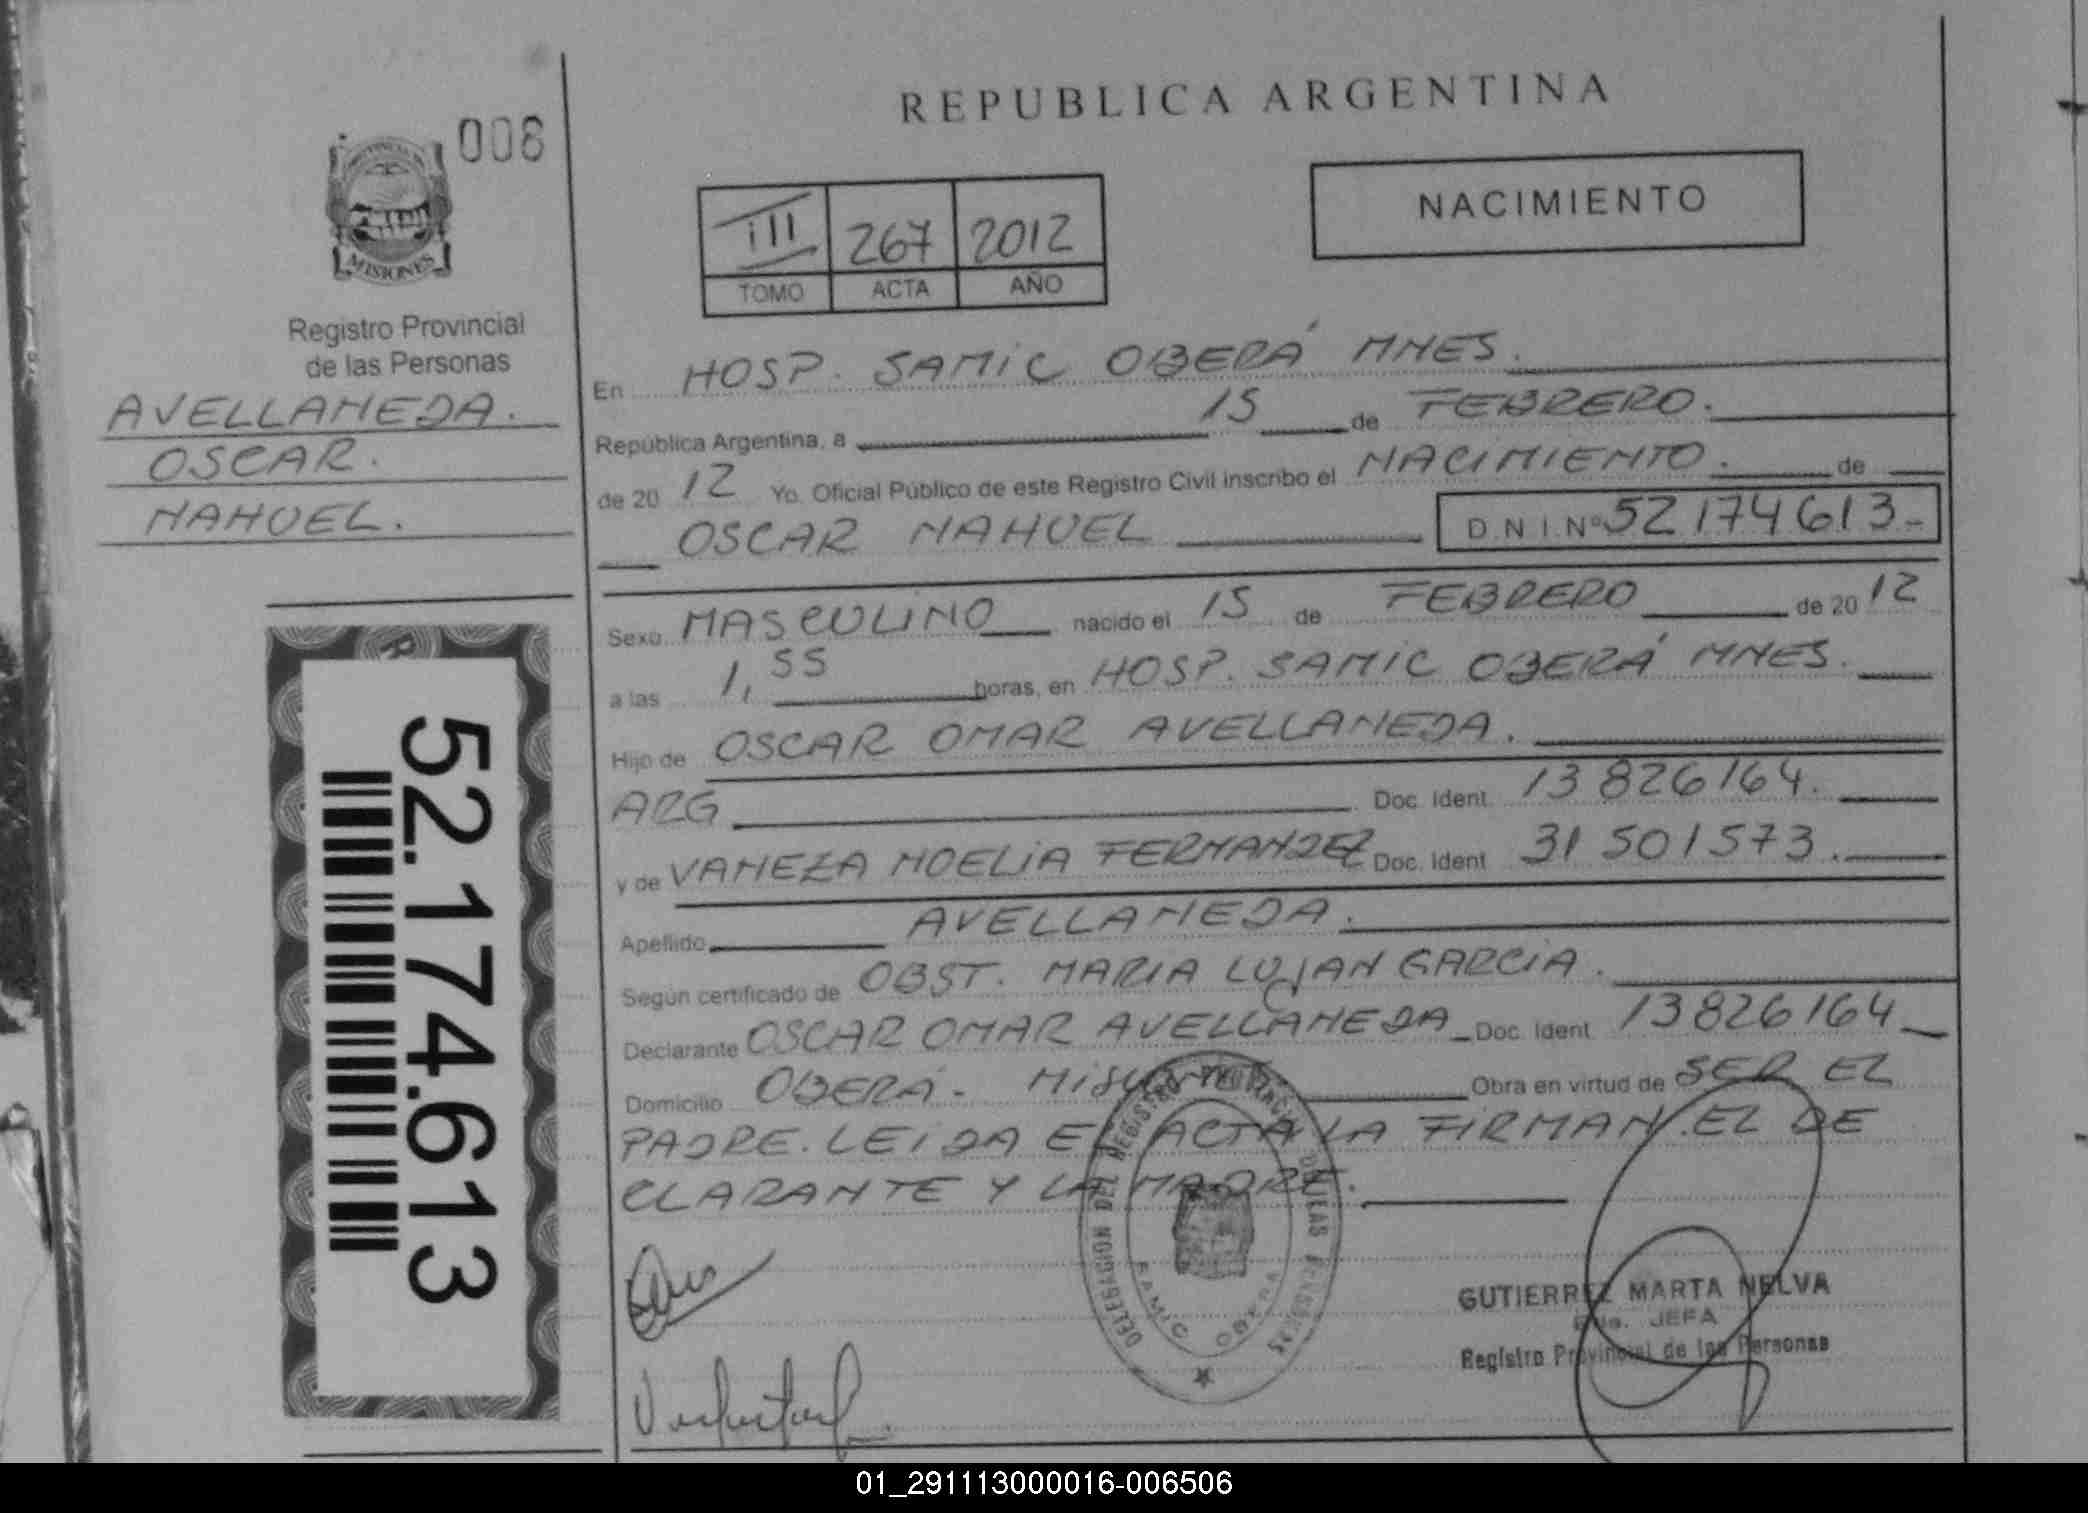 008
PROVINCIA DE
MISIONES
Registro Provincial
de las Personas
AVELLANEDA.
OSCAR.
NAHUEL.
52.174.613
REPUBLICA ARGENTINA
NACIMIENTO
III 267 2012
TOMO ACTA AÑO
En HOSP. SAMIC OBERÁ MNES.
República Argentina, a 15 de FEBRERO.
de 20 12 Yo. Oficial Público de este Registro Civil inscribo el NACIMIENTO. de
OSCAR NAHUEL D.N.I.Nº 52174613.-
Sexo MASCULINO nacido el 15 de FEBRERO de 20 12
a las 1,55 horas, en HOSP. SAMIC OBERÁ MNES.
Hijo de OSCAR OMAR AVELLANEDA.
ARG Doc. Ident. 13826164.
y de VANEZA NOELIA FERNANDEZ Doc. Ident 31501573.
Apellido AVELLANEDA.
Según certificado de OBST. MARIA LUJAN GARCIA.
Declarante OSCAR OMAR AVELLANEDA Doc. Ident 13826164
Domicilio OBERÁ - MISIONES Obra en virtud de SER EL
PADRE. LEIDA EL ACTA LA FIRMAN. EL DE
CLARANTE Y LA MADRE.
DELEGACION DEL REGISTRO PROVINCIAL DE LAS PERSONAS
SAMIC OBERA
GUTIERREZ MARTA NELVA
JEFA
Registro Provincial de las Personas
01_291113000016-006506